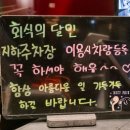 회식의 달인
지하주차장 이용시 차량등록
꼭 하셔야 해용~
항상 아름다운 일 가득가득
하길 바랍니다.